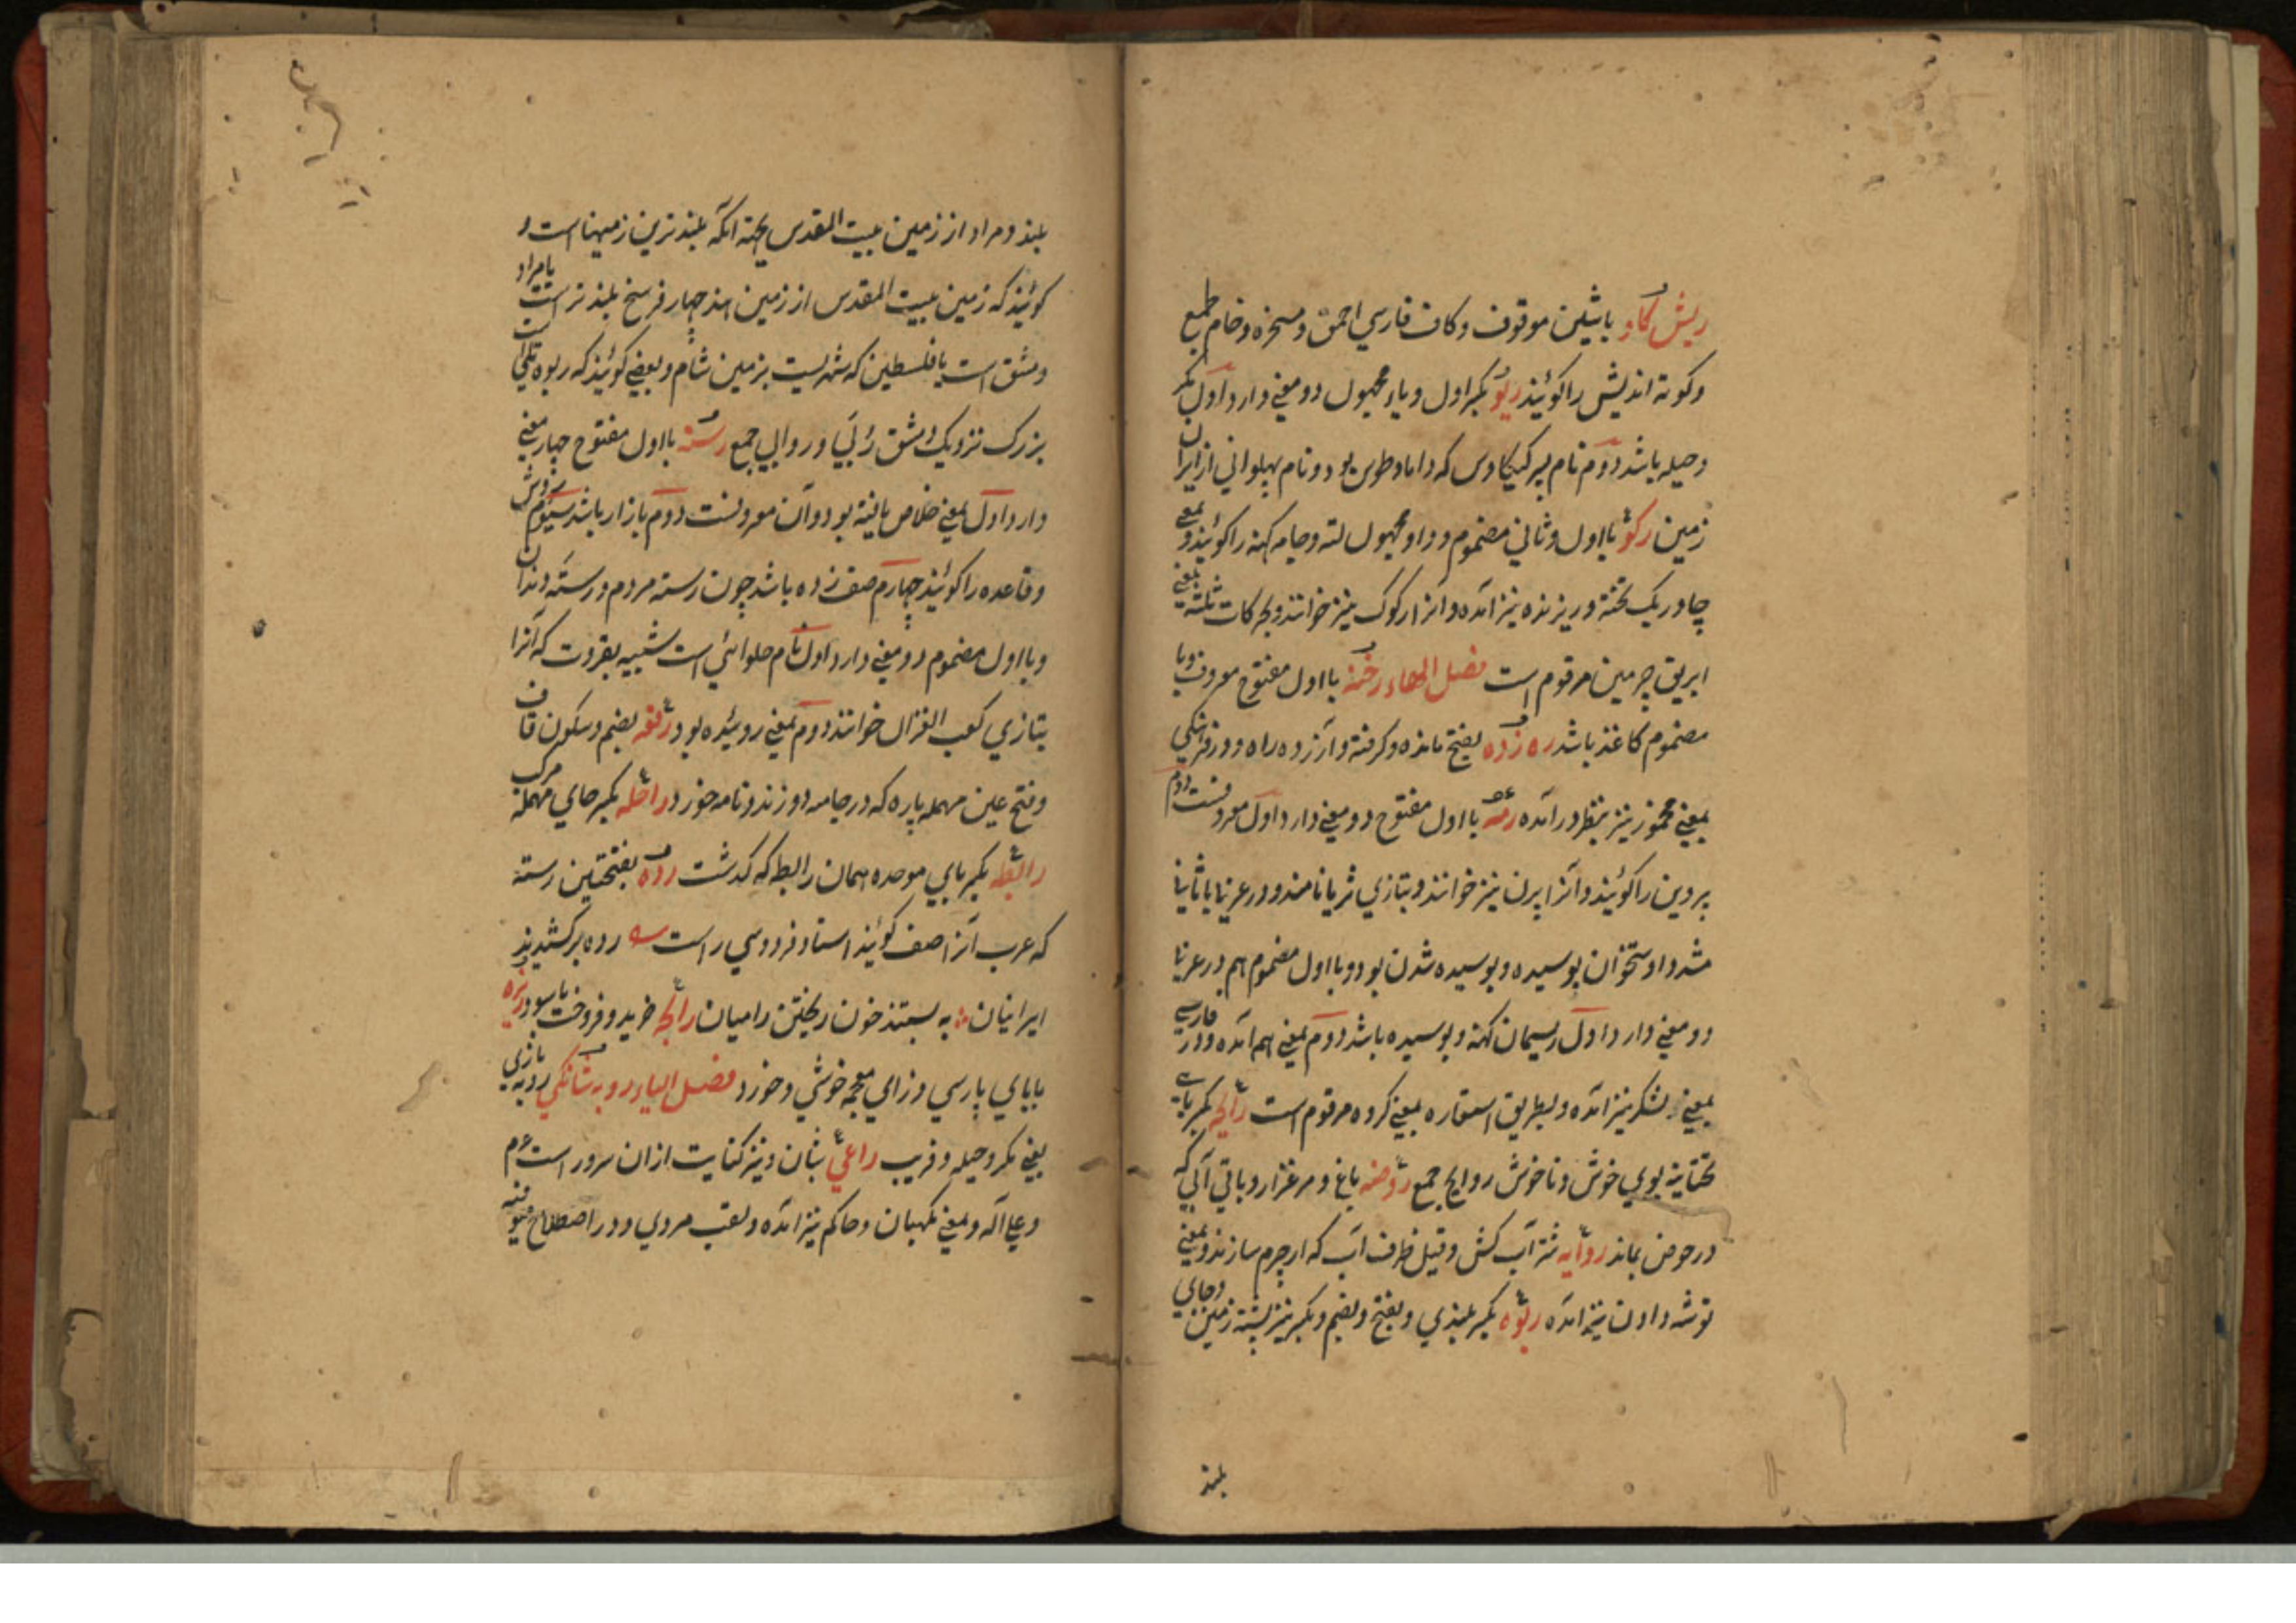 ریش گاو باشین موقوف و کاف فارسي احمق و مسخره و خام طمع
و کوته اندیش را گویند ریو بکسر اول و یاء مجهول دو معني دارد اول مکر
و حیله باشد دوم نام پسر کیکاوس که داماد طوس بود و نام پهلواني از ایران
زمین رکو با اول و ثاني مضموم و واو مجهول لته و جامه کهنه را گویند و بمعني
چادر یک تخته و ریزنده نیز آمده و انرا رکوک نیز خوانند و بحرکات ثلثه بمعني
ابریق چرمین مرقوم است فصل الهاء رخنه با اول مفتوح معروف و با
مضموم کاغذ باشد ره زده بفتح مانده و کرفته و آزرده راه و در فرهنگي
بمعني مخمور نیز بنظر در آمده رمه با اول مفتوح دو معني دارد اول معروفست دوم
پروین را گویند و آنرا پرن نیز خوانند و بتازي ثریا نامند و در عربي با ثاني
مشدد استخوان پوسیده و پوسیده شدن بود و با اول مضموم هم در عربي
دو معني دارد اول ریسمان کهنه و پوسیده باشد دوم بمعني هم آمده و در فارسي
بمعني لشکر نیز آمده و بطریق استعاره بمعني کروه مرقوم است رایحه بکسر یاي
تحتانیه بوي خوش و ناخوش روایح جمع روضه باغ و مرغزار و باقي آبي که
در حوض بماند راویه شتر آب کش و قیل ظرف آب که از چرم سازند و بمعني
توشه دادن نیز آمده ربوه بکسر بلندي و بفتح و بضم و بکسر نیز پشته زمین و جاي
بلند
بلند و مراد از زمین بیت المقدس بجهة آنکه بلند ترین زمینها است و
گویند که زمین بیت المقدس از زمین هند چهار فرسخ بلند تر است یا مراد
دمشق است یا فلسطین که شهریست بزمین شام و بعضي گویند که ربوه تلي است
بزرک نزدیک دمشق رُبَي و روابي جمع رسته با اول مفتوح چهار معني
دارد اول بمعني خلاص یافته بود و آن معروفست دوم بازار باشد سیوم روش
و قاعده را گویند چهارم صف زده باشد چون رسته مردم و رسته دندان
و با اول مضموم دو معني دارد اول نام حلوائي است شبیه بقروت که آنرا
بتازي کعب الغزال خوانند دوم بمعني روئیده بود رقعه بضم و سکون قاف
و فتح عین مهمله پاره که در جامه دوزند و نامه خورد راحله بکسر حاي مهمله مرکب
رابطه بکسر باي موحده همان رابط که کدشت رده بفتحتین رسته
که عرب آنرا صف گویند استاد فردوسي راست رده بر کشیدند
ایرانیان به بستند خون ریختن را میان رابحه خرید و فروخت با سود ریزه
با یاي پارسي و زاي معجمه خوشي و خورد فصل الیاء روبه شانکي روبه بازي
یعني مکر و حیله و فریب راعي شبان و نیز کنایت از ان سرور است صلعم
و علي آله و بمعني نگهبان و حاکم نیز آمده و لقب مردي و در اصطلاح صوفیه